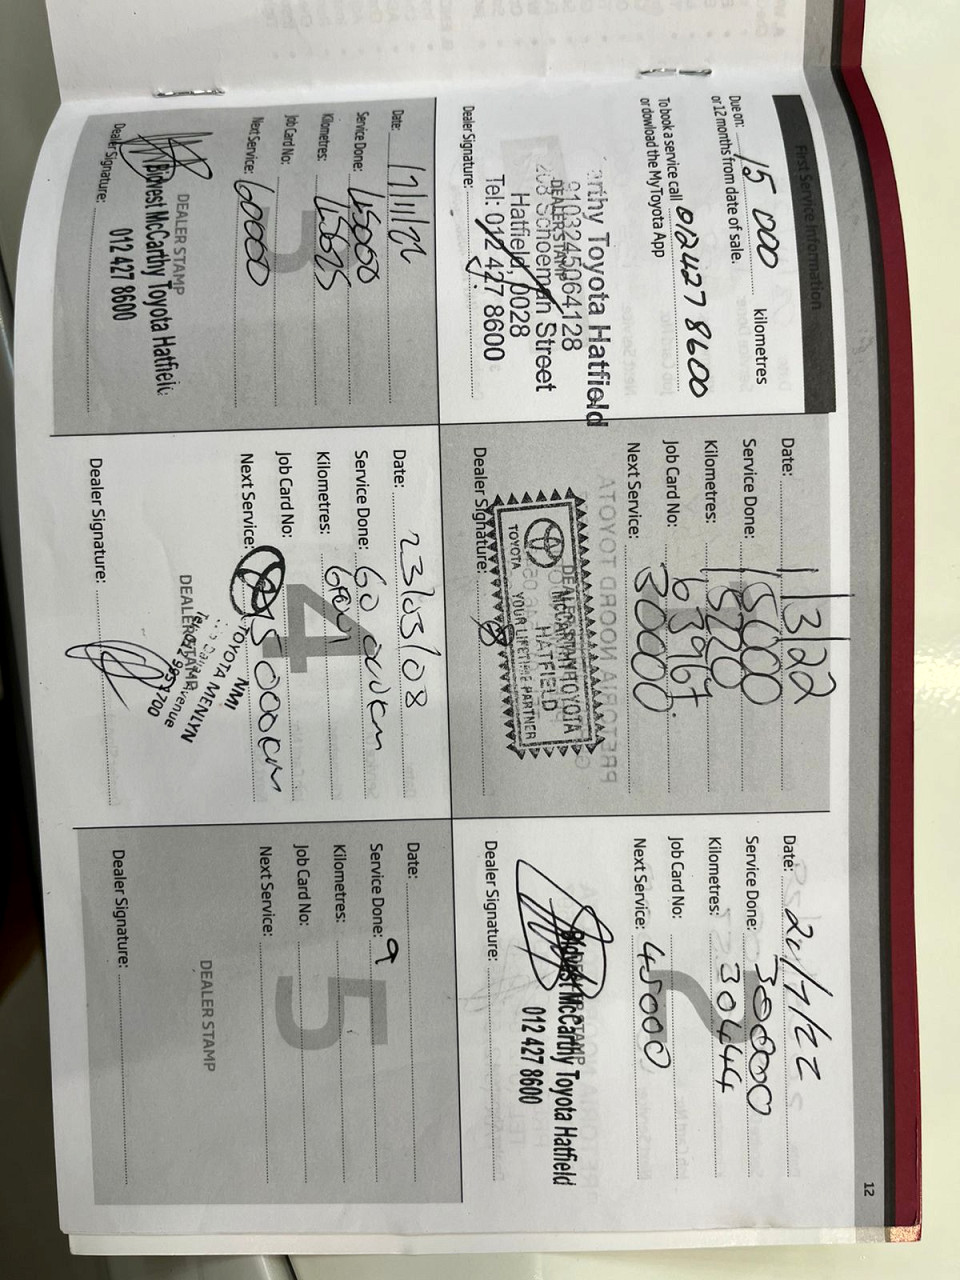 12
First Service Information
Due on: 15 000 kilometres
or 12 months from date of sale.
To book a service call 012 427 8600
or dowload the MyToyota App
arthy Toyota Hatfield
DEALER STAMP
Hatfield, 0028
Tel: 012 427 8600
Dealer Signature:
Date: 1/3/22
Service Done: 15000
Kilometres:
Job Card No:
Next Service: 30000
DEALER STAMP
MCCARTHY TOYOTA
HATFIELD
TOYOTA YOUR LIFETIME PARTNER
Dealer Signature:
Date: 20/7/22
Service Done: 30000
Kilometres: 30444
Job Card No:
Next Service: 45000
2
Bidvest McCarthy Toyota Hatfield
012 427 8600
Dealer Signature:
Date: 17/11/22
Service Done: 45000
Kilometres:
Job Card No:
Next Service: 60000
3
DEALER STAMP
Bidvest McCarthy Toyota Hatfield
012 427 8600
Dealer Signature:
Date: 23/03/08
Service Done: 60 000km
Kilometres:
Job Card No:
Next Service: 75 000km
4
DEALER STAMP
NMI
TOYOTA MENLYN
Dealer Signature:
Date:
Service Done: 9
Kilometres:
Job Card No:
Next Service:
5
DEALER STAMP
Dealer Signature: